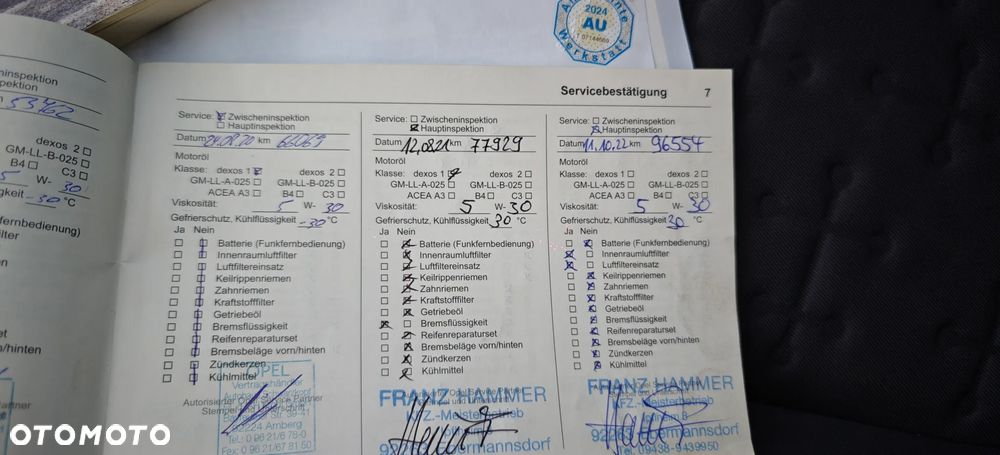 2024
AU
T 07144669
Werkstatt
53462
dexos 2
GM-LL-B-025
B4
C3
5 W- 30
-30 °C
Servicebestätigung 7
Service: Zwischeninspektion
Hauptinspektion
Datum 24.08.20 km 66069
Motoröl
Klasse: dexos 1 dexos 2
GM-LL-A-025 GM-LL-B-025
ACEA A3 B4 C3
Viskosität: 5 W- 30
Gefrierschutz, Kühlflüssigkeit -30 °C
Ja Nein
Batterie (Funkfernbedienung)
Innenraumluftfilter
Luftfiltereinsatz
Keilrippenriemen
Zahnriemen
Kraftstofffilter
Getriebeöl
Bremsflüssigkeit
Reifenreparaturset
Bremsbeläge vorn/hinten
Zündkerzen
Kühlmittel
OPEL
Vertragshändler
Autorisierter Opel Service Partner
92224 Amberg
Tel.: 0 96 21/6 78-0
Fax: 0 96 21/67 81 50
Service: Zwischeninspektion
Hauptinspektion
Datum 12.08.21 km 77929
Motoröl
Klasse: dexos 1 dexos 2
GM-LL-A-025 GM-LL-B-025
ACEA A3 B4 C3
Viskosität: 5 W- 30
Gefrierschutz, Kühlflüssigkeit 30 °C
Ja Nein
Batterie (Funkfernbedienung)
Innenraumluftfilter
Luftfiltereinsatz
Keilrippenriemen
Zahnriemen
Kraftstofffilter
Getriebeöl
Bremsflüssigkeit
Reifenreparaturset
Bremsbeläge vorn/hinten
Zündkerzen
Kühlmittel
FRANZ HAMMER
KFZ.-Meisterbetrieb
Ebermannsdorf
Service: Zwischeninspektion
Hauptinspektion
Datum 11.10.22 km 96554
Motoröl
Klasse: dexos 1 dexos 2
GM-LL-A-025 GM-LL-B-025
ACEA A3 B4 C3
Viskosität: 5 W- 30
Gefrierschutz, Kühlflüssigkeit 30 °C
Ja Nein
Batterie (Funkfernbedienung)
Innenraumluftfilter
Luftfiltereinsatz
Keilrippenriemen
Zahnriemen
Kraftstofffilter
Getriebeöl
Bremsflüssigkeit
Reifenreparaturset
Bremsbeläge vorn/hinten
Zündkerzen
Kühlmittel
FRANZ HAMMER
KFZ.-Meisterbetrieb
92263 Ebermannsdorf
Tel. 09438-9439950
OTOMOTO